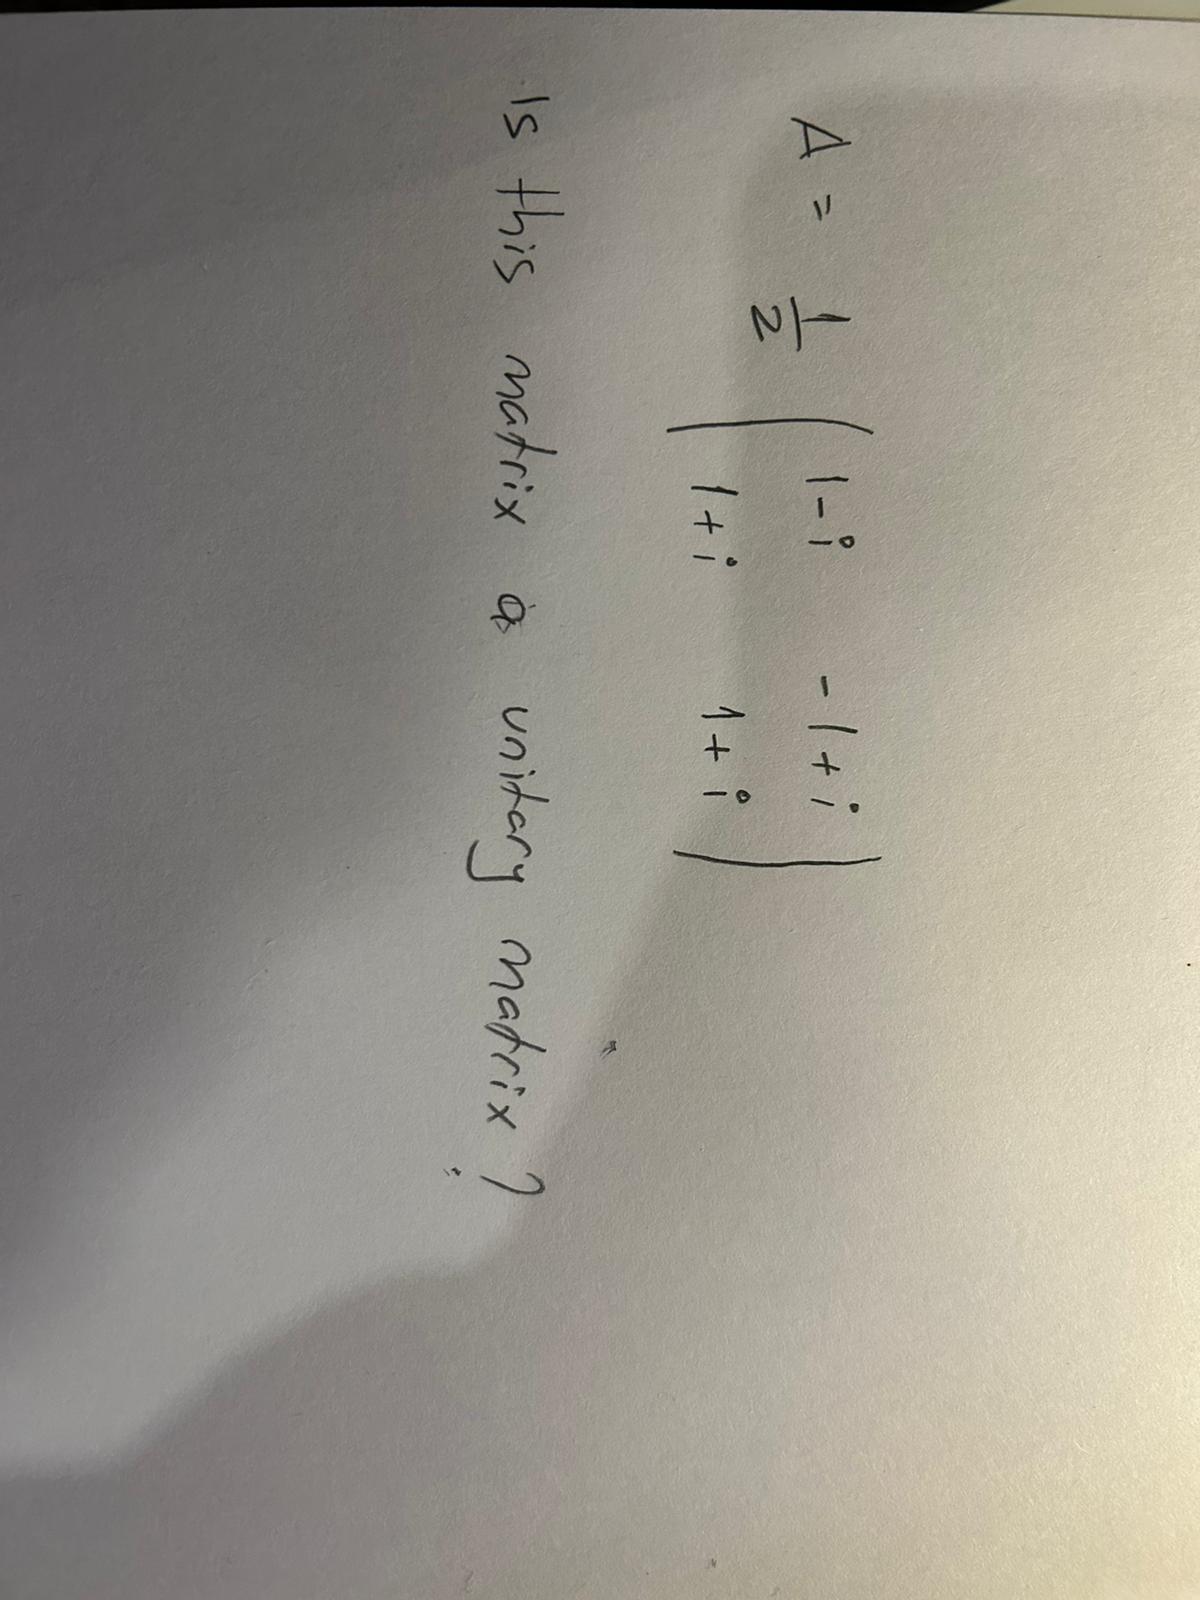 A = 1/2 ( 1-i -1+i
1+i 1+i )
Is this matrix a unitary matrix?